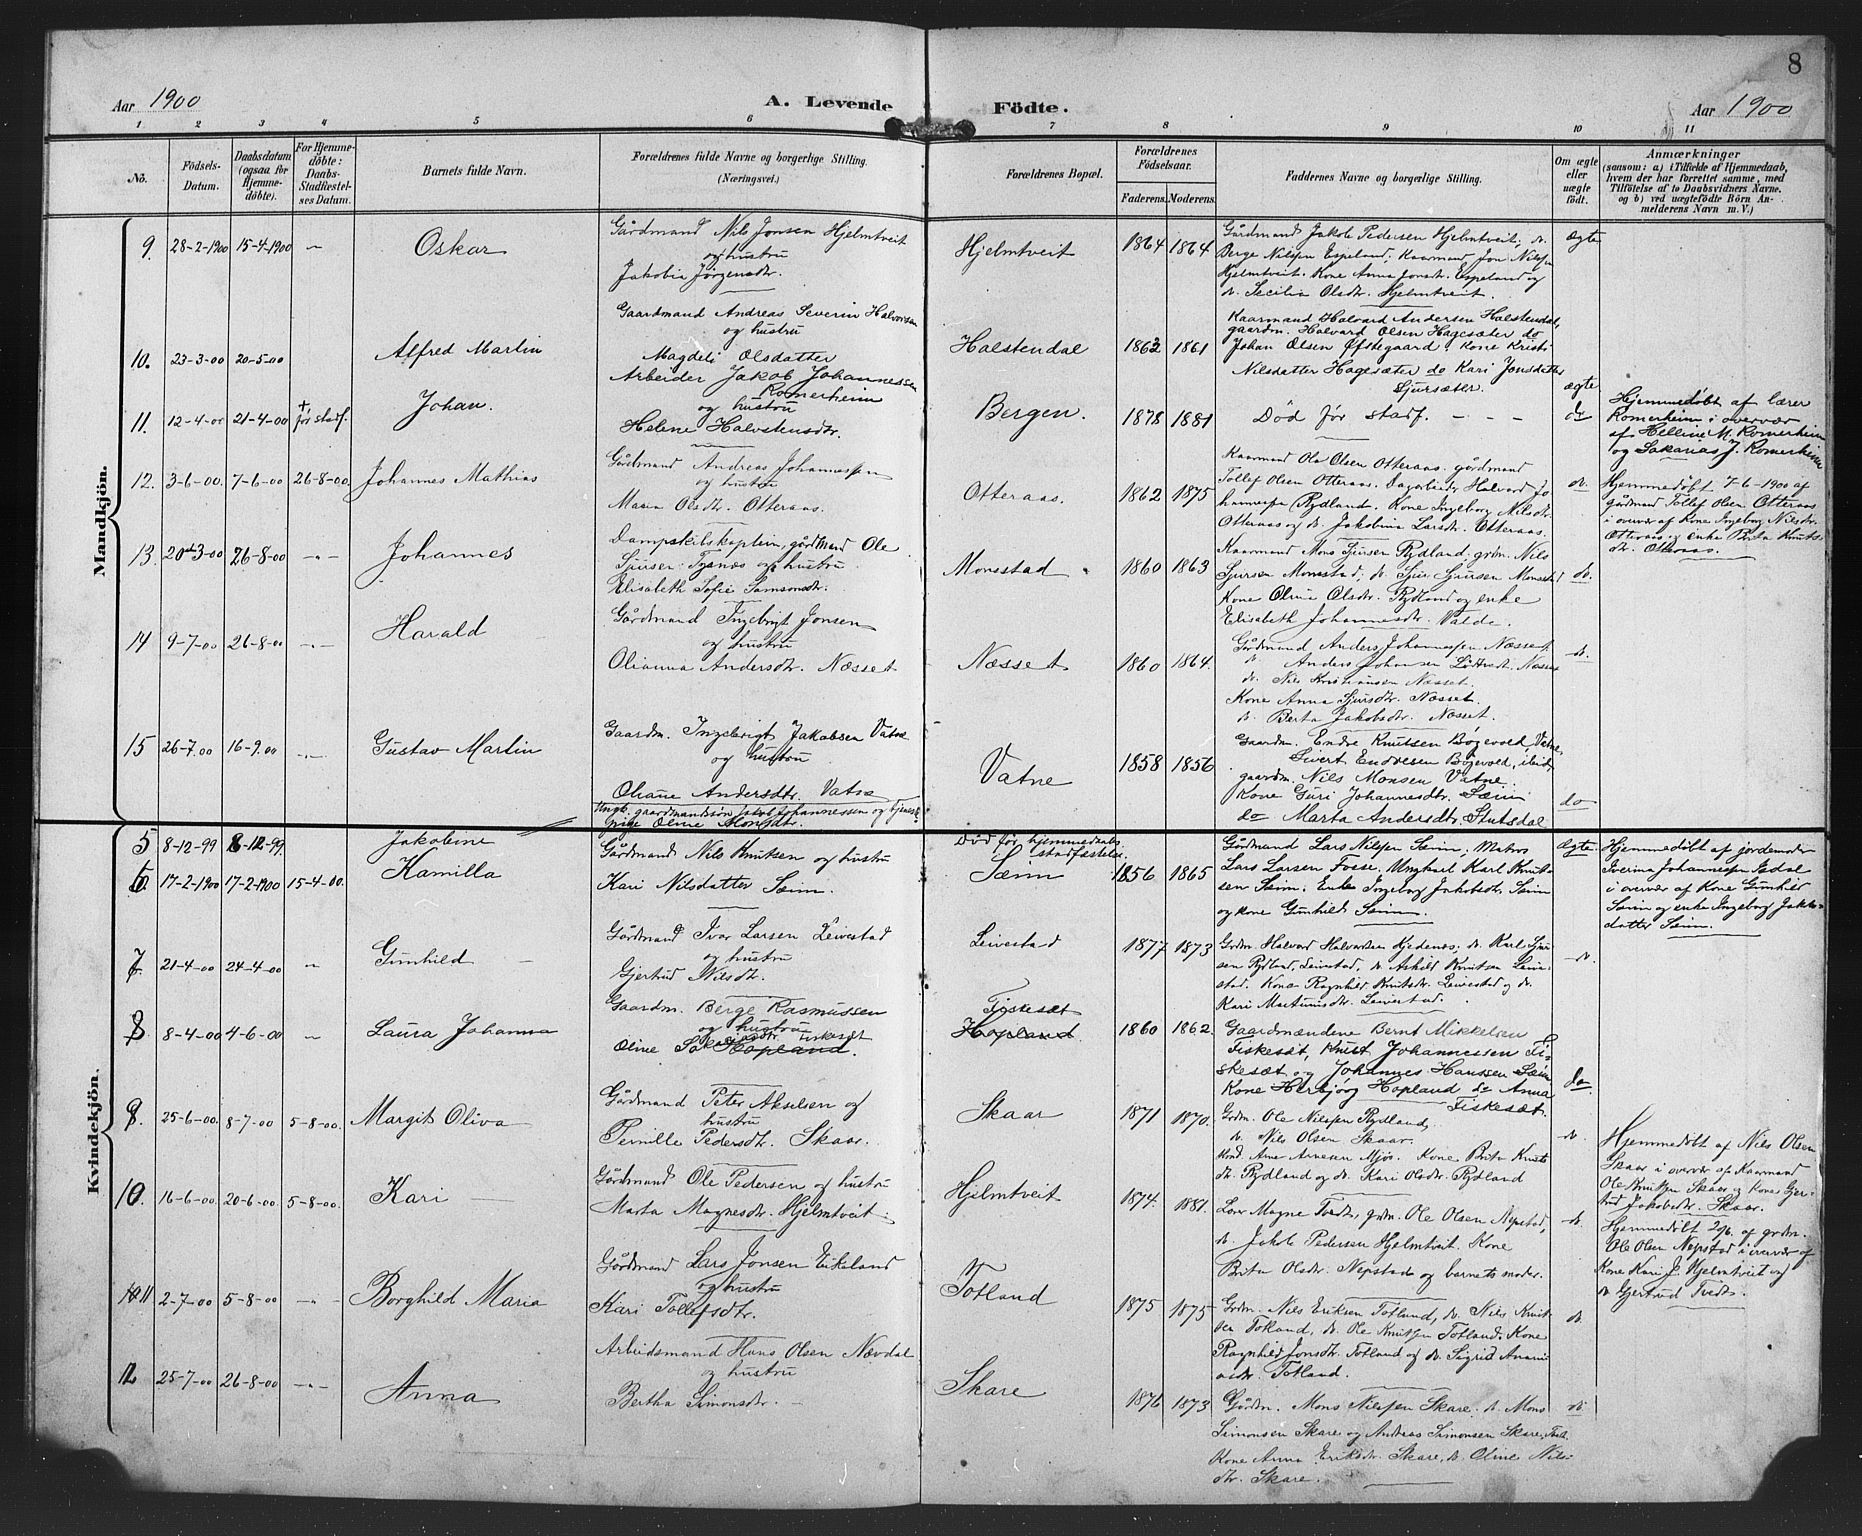 8
Aar 1900
A. Levende Födte.
Aar 1900
1 2 3 4 5 6 7 8 9 10 11
No.
Födsels-
Datum.
Daabsdatum
(ogsaa for
Hjemme-
döbte).
For Hjemme-
döbte:
Daabs-
Stadfæstel-
ses Datum.
Barnets fulde Navn.
Forældrenes fulde Navne og borgerlige Stilling.
(Næringsvei.)
Forældrenes Bopæl.
Forældrenes
Födselsaar.
Faderens. Moderens.
Faddernes Navne og borgerlige Stilling.
Om ægte
eller
uægte
födt.
Anmærkninger
(saasom: a) i Tilfælde af Hjemmedaab,
hvem der har forrettet samme, med
Tilföielse af to Daabsvidners Navne.
og b) ved uægtefödte Börn An-
melderens Navn m. V.)
Mandkjön.
9. 28-2-1900 15-4-1900 -"- Oskar
Gårdmand Nils Jonsen Hjelmtveit
og hustru
Jakobia Jørgensdtr.
Hjelmtveit 1864 1864
Gårdmand Jakob Pedersen Hjelmtveit; do.
Berge Nilssen Espeland; Kaarmand Jon Nilssen
Hjelmtveit. Kone Anna Jonsdt. Espeland og
do. Secilia Olsdtr. Hjelmtveit.
ægte
10. 23-3-00 20-5-00 Alfred Martin
Gaardmand Andreas Severin Halvorsen
og hustru
Magdeli Olsdatter
Halstendal 1862 1861
Kaarmand Halvard Andersen Halstendal,
gaardm. Halvard Olsen Hagesæter do
Johan Olsen Øfstegaard. Kone Kristi
Nilsdatter Hagesæter do Kari Jonsdatter
Sjursæter.
ægte
11. 12-4-00 21-4-00 + før stadf. Johan.
Arbeider Jakob Johannessen
Romerheim
og hustru
Helene Halvstensdtr.
Bergen. 1878 1881
Død før stadf. - - -
do
Hjemmedøbt af lærer
Romerheim i overvær
af Helline M. Romerheim
og Sakarias J. Romerheim
12. 3-6-00 7-6-00 26-8-00. Johannes Mathias
Gårdmand Andreas Johannessen
og hustru
Maria Olsdtr. Otteraas.
Otteraas. 1862 1875
Kaarmand Ole Olsen Otteraas. gårdmand
Tollef Olsen Otteraas. Dagarbeider Halvard Jo-
hannessen Rydland. Kone Ingeborg Nilsdtr.
Otteraas og do. Jakobina Larsdtr. Otteraas.
do.
Hjemmedøbt 7-6-1900 af
gårdmand Tollef Olsen Otteraas
i overvær af Kone Ingeborg Nilsdtr.
Otteraas og enke Brita Knuts-
dtr. Otteraas.
13. 26-8-00 -"- Johannes
Dampskibskaptein, gårdmand Ole
Sjursen Tysnæs og hustru
Elisabeth Sofie Samsonsdtr.
Monsstad 1860 1863
Kaarmand Mons Sjursen Rydland, grdm. Nils
Sjursen Monsstad; do. Sjur Sjursen Monsstad
Kone Olina Olsdtr. Rydland og enke
Elisabeth Johannesdtr. Valde.
do.
14 9-7-00 26-8-00 -"- Harald
Gårdmand Ingebrigt Jonsen
og hustru
Olianna Andersdtr. Næsset
Næsset 1860 1864.
Gårdmand Anders Johannessen Næsset
do. Anders Johansen Næsset
do. Nils Kristiansen Næsset.
Kone Anna Sjursdtr. Næsset.
do. Berta Jakobsdtr. Næsset.
do.
15 26-7.00 16-9.00 -"- Gustav Martin
Gaardm. Ingebrigt Jakobsen Vatne
og hustru
Oliane Andersdtr. Vatne
Vatne 1858 1856
Gaardm. Endre Knutsen Bøgevold, Vatne.
Sivert Endresen Bøgevold,
gaardm. Nils Monsen Vatne.
Kone Guri Johannesdtr. Sæim
do Marta Andersdtr. Stutsdal
do
Kvindekjön.
5 8-12-99 8-12-99. Jakobine
Ungk. gaardmandsøn Jakob Johannessen og tjeneste-
pige Oline Monsdtr.
Død før hjemmedaabs
stadfæstelse.
6. 17-2-1900 17-2-1900 15-4-00. Kamilla
Gårdmand Nils Knutsen og hustru
Kari Nilsdatter Sæim.
Sæim 1856 1865
Gårdmand Lars Nilssen Sæim; Matros
Lars Larsen Fosse. Ungkarl Karl Knut-
sen Sæim. Enke Ingeborg Jakobsdtr. Sæim
og kone Gunhild Sæim.
ægte
Hjemmedøbt af jordemoder
Iverina Johannessen Sædal
i overvær af Kone Gunhild
Sæim og enke Ingeborg Jakobs-
datter Sæim.
7 21-4-00 24-4-00 -"- Gunhild
Gårdmand Ivar Larsen Leivestad
og hustru
Gjertrud Nilsdtr.
Leivestad 1877 1873
Grdm. Halvard Halvardsen Hjedenæs; do. Karl Sjur-
sen Rydland, Leivestad, do. Askild Knutsen Leive-
stad. Kone Ragnhild Knutsdtr. Leivestad og do.
Kari Martinusdtr. Leivestad.
do.
8 8-4-00 4-6-00 -"- Laura Johanna
Gaardm. Berge Rasmussen
og hustru
Oline Sakariasdtr. Fiskesæt
Hopland.
Fiskesæt
Hopland 1860 1862.
Gaardmændene Bernt Mikkelsen
Fiskesæt, Knut Johannessen Fi-
skesæt og Johannes Hanssen Sæim
Kone Herbjørg Hopland do Anna
Fiskesæt.
do
9. 25-6-00. 8-7-00 5-8-00. Margit Oliva
Gårdmand Peter Akselsen og
hustru
Pernille Pedersdtr. Skaar.
Skaar 1871 1870.
Grdm. Ole Nilssen Rydland,
do. Nils Olsen Skaar.
Arne Arnesen Mjøs. Kone Brita Knuts-
dtr. Rydland og do. Kari Olsdtr. Rydland
do.
Hjemmedøbt af Nils Olsen
Skaar i overvær af Kaarmand
Ole Knutsen Skaar og Kone Gjer-
trud Jakobsdtr. Skaar.
10. 16-6-00. 20-6-00. 5-8-00. Kari
Gårdmand Ole Pedersen og hustru
Marta Magnesdtr. Hjelmtveit.
Hjelmtveit 1874. 1881.
Lærer Magne Tvedt, grdm. Ole Olsen Nepstad,
do. Jakob Pedersen Hjelmtveit. Kone
Brita Olsdtr. Nepstad og barnets moder.
do.
Hjemmedøbt 20/6. af grdm.
Ole Olsen Nepstad i overvær af
Kone Kari J. Hjelmtveit og
do. Gjertrud Tvedt.
11 2-7-00 5-8-00 -"- Borghild Maria
Gårdmand Lars Jonsen Eikeland
og hustru
Kari Tollefsdtr.
Totland 1875 1875
Grdm. Nils Eriksen Totland, do. Nils Knut-
sen Totland, do. Ole Knutsen Totland. Kone
Ragnhild Jonsdtr. Totland og do. Sigrid
Totland.
do.
12 25-7-00 26-8-00 -"- Anna
Arbeidsmand Hans Olsen Nævdal
og hustru
Bertha Simonsdtr.
Skare 1876 1873
Gårdm. Mons Nilssen Skare. do. Mons
Simonsen Skare og Andreas Simonsen Skare,
Kone Anna Eriksdtr. Skare, do. Oline Nils-
dtr. Skare.
do